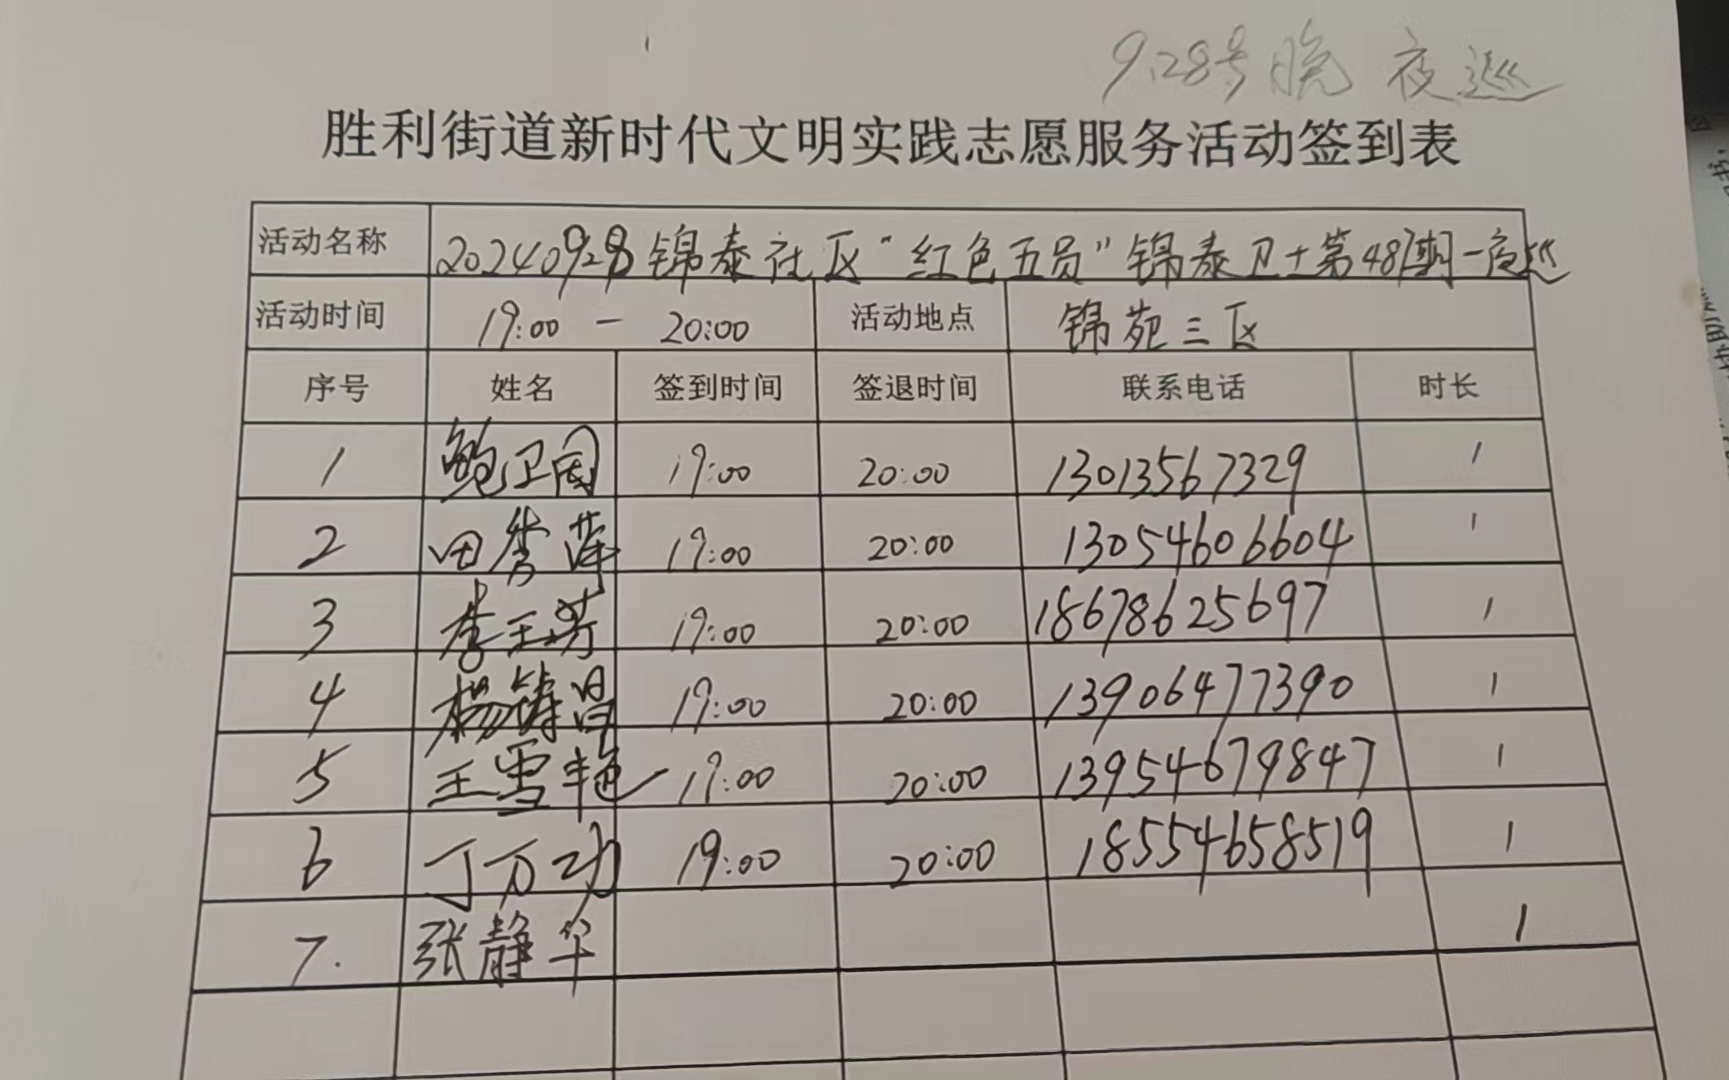 9.28号晚 夜巡
胜利街道新时代文明实践志愿服务活动签到表
活动名称 20240928锦泰社区“红色五员”锦泰卫士第48期一夜巡
活动时间 19:00 — 20:00 活动地点 锦苑三区
序号 姓名 签到时间 签退时间 联系电话 时长
1 鲍卫国 19:00 20:00 13013567329 1
2 田秀萍 19:00 20:00 13054606604 1
3 李玉芳 19:00 20:00 18678625697 1
4 杨铸昌 19:00 20:00 13906477390 1
5 王雪艳 19:00 20:00 13954679847 1
6 丁万功 19:00 20:00 18554658519 1
7. 张静华 1